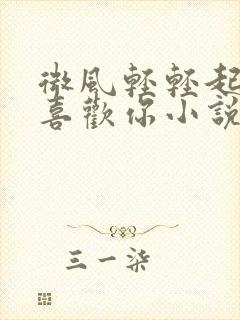 微風輕輕起
喜歡你小說
三一柒